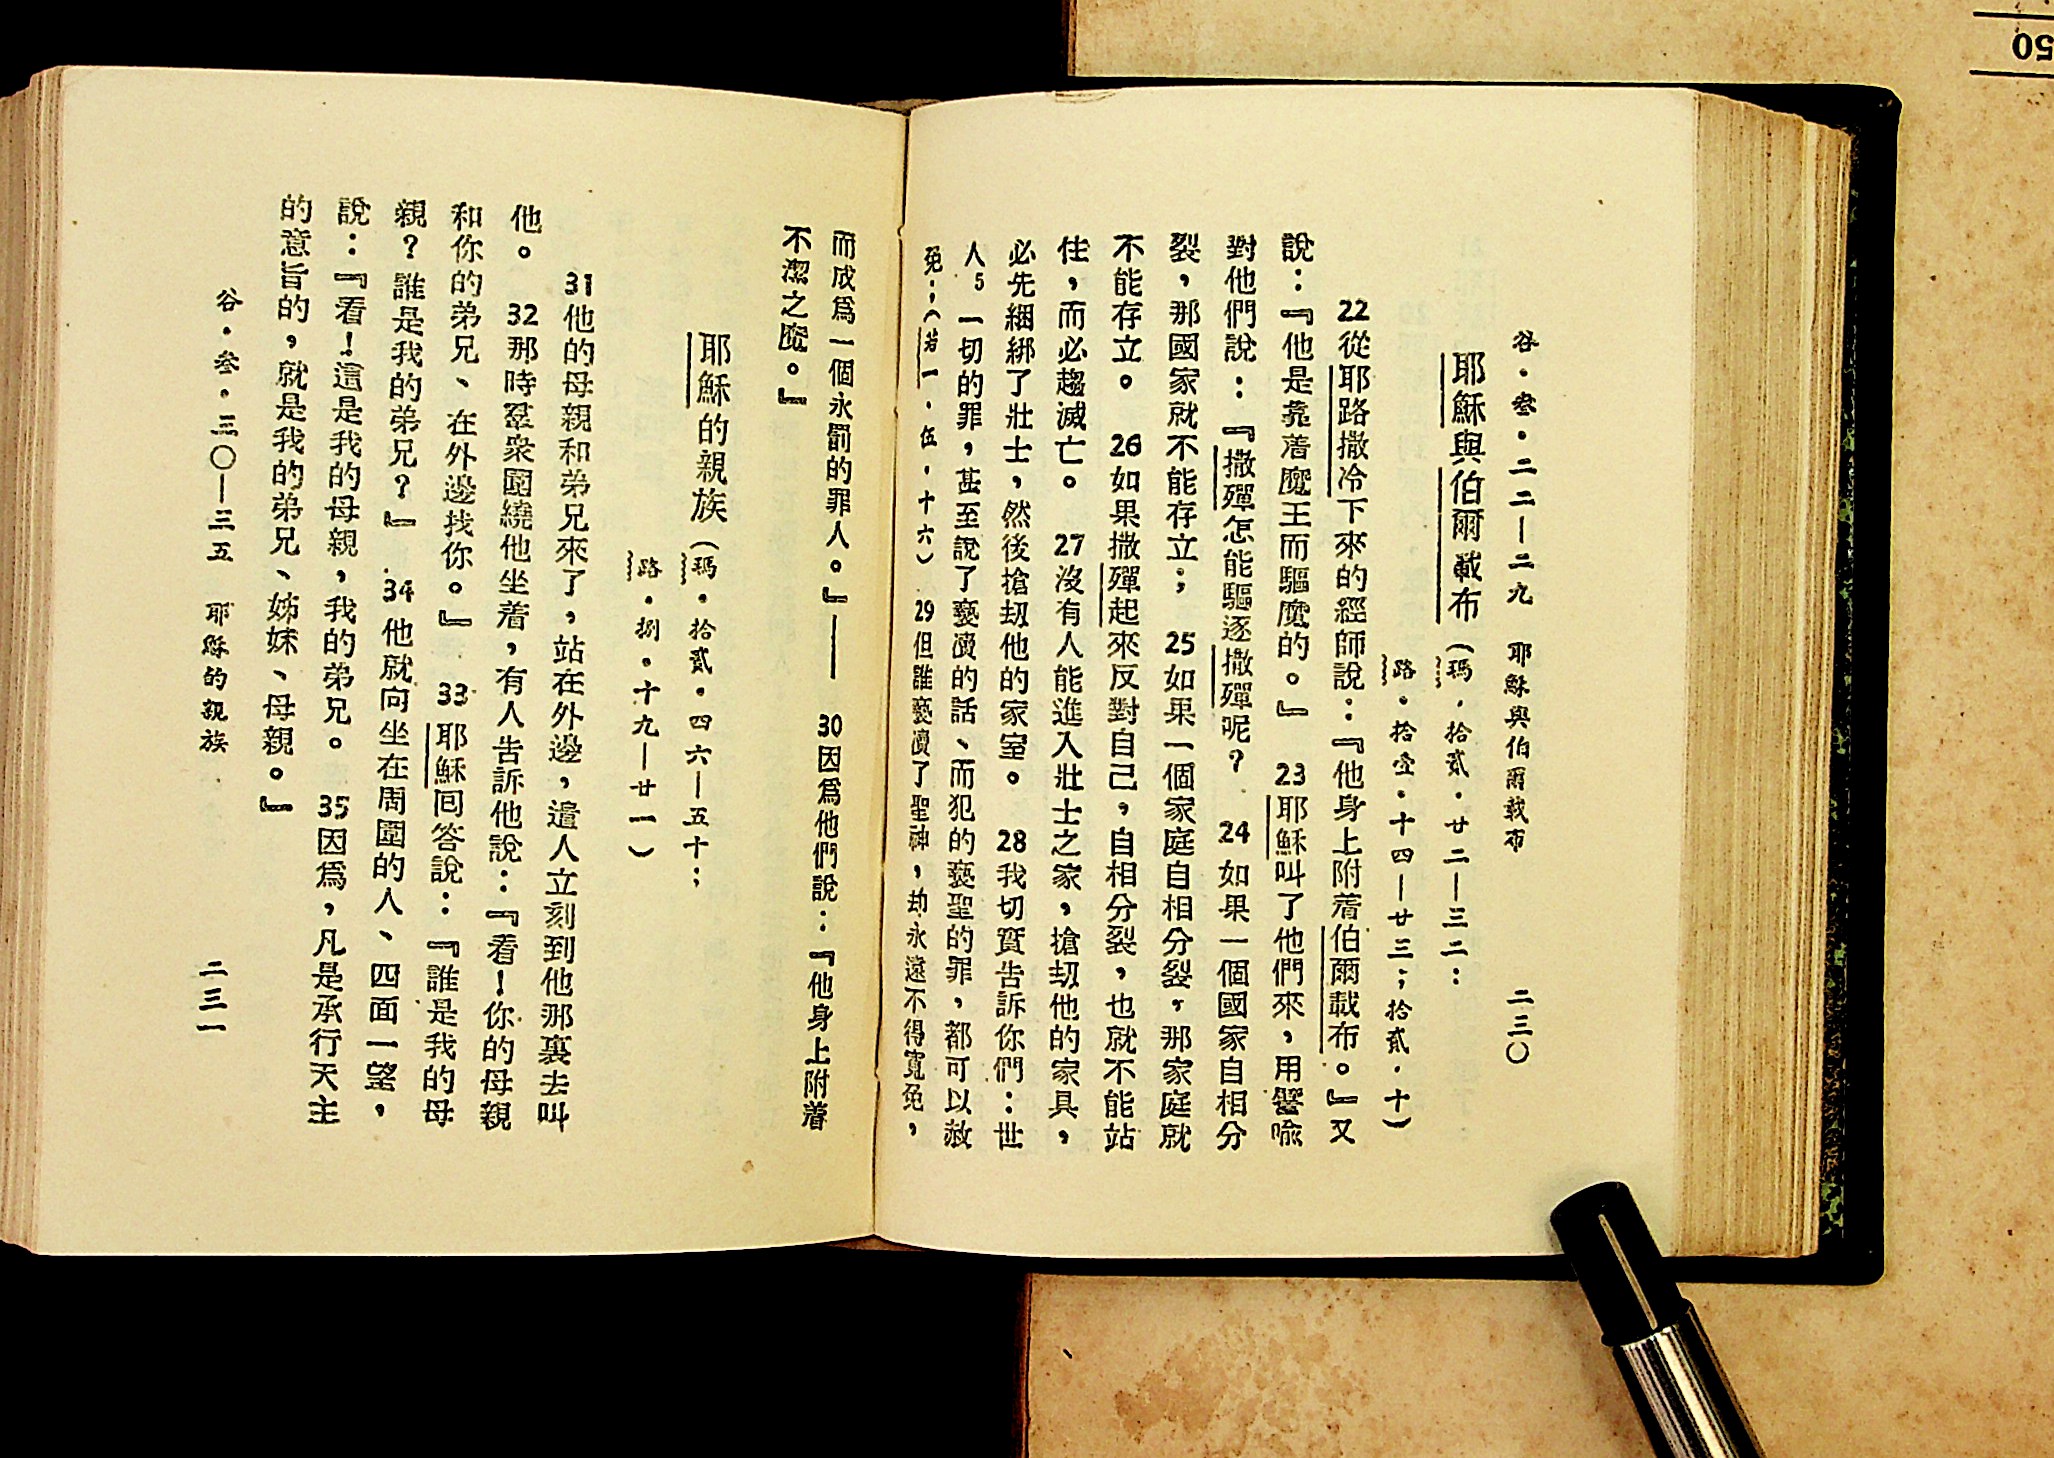 谷·叁·二二—二九 耶穌與伯爾載布 二三〇
耶穌與伯爾載布（瑪·拾貳·廿二—三二：
路·拾壹·十四—廿三；拾貳·十）
22從耶路撒冷下來的經師說：『他身上附着伯爾載布。』又
說：『他是靠着魔王而驅魔的。』 23耶穌叫了他們來，用譬喩
對他們說：『撒殫怎能驅逐撒殫呢？ 24如果一個國家自相分
裂，那國家就不能存立； 25如果一個家庭自相分裂，那家庭就
不能存立。 26如果撒殫起來反對自己，自相分裂，也就不能站
住，而必趨滅亡。 27沒有人能進入壯士之家，搶刧他的家具，
必先綑綁了壯士，然後搶刧他的家室。 28我切實告訴你們：世
人5一切的罪，甚至說了褻瀆的話、而犯的褻聖的罪，都可以赦
免；（若一·伍·十六） 29但誰褻瀆了聖神，却永遠不得寬免，
而成爲一個永罰的罪人。』—— 30因爲他們說：『他身上附着
不潔之魔。』
耶穌的親族（瑪·拾貳·四六—五十；
路·捌·十九—廿一）
31他的母親和弟兄來了，站在外邊，遣人立刻到他那裏去叫
他。 32那時羣衆圍繞他坐着，有人告訴他說：『看！你的母親
和你的弟兄、在外邊找你。』 33耶穌囘答說：『誰是我的母
親？誰是我的弟兄？』 34他就向坐在周圍的人、四面一望，
說：『看！這是我的母親，我的弟兄。 35因爲，凡是承行天主
的意旨的，就是我的弟兄、姊妹、母親。』
谷·叁·三〇—三五 耶穌的親族 二三一
50